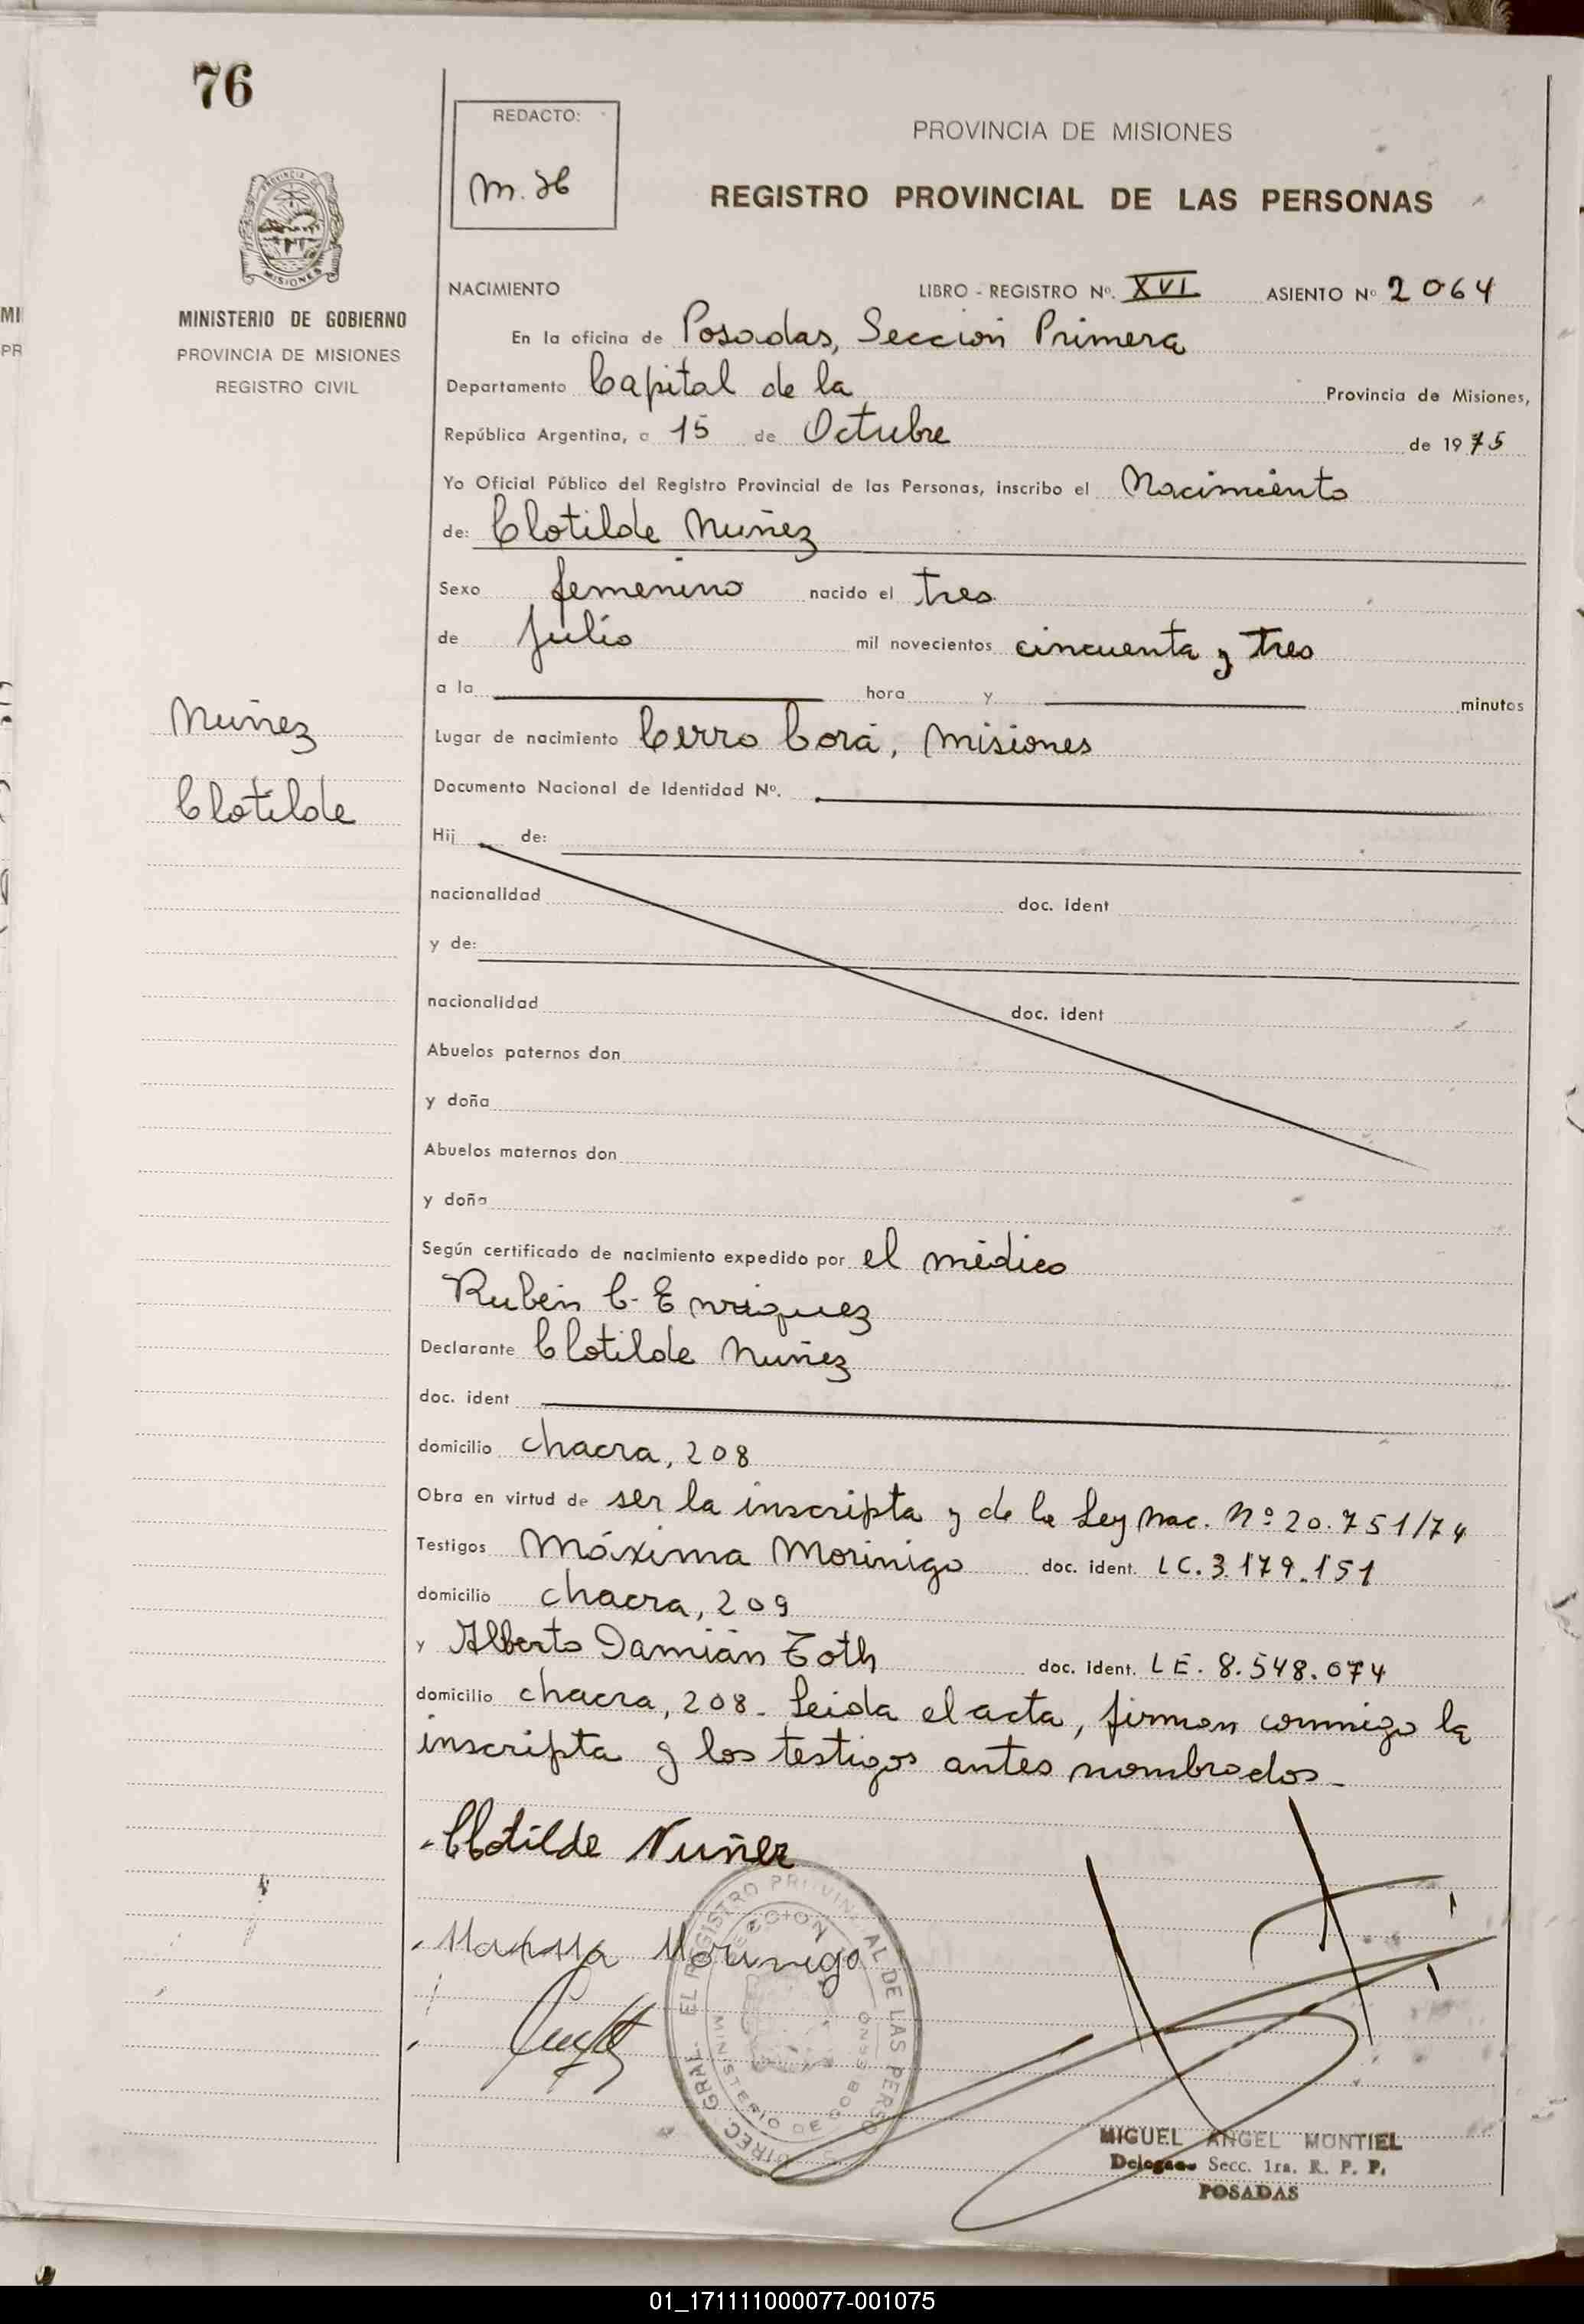 76
REDACTO:
PROVINCIA DE MISIONES
REGISTRO PROVINCIAL DE LAS PERSONAS
MINISTERIO DE GOBIERNO
PROVINCIA DE MISIONES
REGISTRO CIVIL
NACIMIENTO LIBRO - REGISTRO Nº. XVI ASIENTO Nº 2064
En la oficina de Posadas, Sección Primera
Departamento Capital de la Provincia de Misiones,
República Argentina, a 15 de Octubre de 1975
Yo Oficial Público del Registro Provincial de las Personas, inscribo el Nacimiento
de: Clotilde Nuñez
Sexo femenino nacido el tres
de Julio mil novecientos cincuenta y tres
a la hora y minutos
Nuñez
Clotilde
Lugar de nacimiento Cerro Corá, Misiones
Documento Nacional de Identidad Nº.
Hij de:
nacionalidad doc. ident
y de:
nacionalidad doc. ident
Abuelos paternos don
y doña
Abuelos maternos don
y doña
Según certificado de nacimiento expedido por el médico
Rubén C. Enriquez
Declarante Clotilde Nuñez
doc. ident
domicilio chacra, 208
Obra en virtud de ser la inscripta y de la Ley Nac. Nº 20.751/74
Testigos Máxima Morinigo doc. ident. LC. 3.179.151
domicilio chacra, 209
y Alberto Damián Toth doc. ident. LE. 8.548.074
domicilio chacra, 208. Leida el acta, firman conmigo la
inscripta y los testigos antes nombrados.
Clotilde Nuñez
Maxima Morinigo
DIREC. GRAL. EL REGISTRO PROVINCIAL DE LAS PERSO
SECCION
MINISTERIO DE GOBIERNO
MIGUEL ANGEL MONTIEL
Delegado Secc. 1ra. R. P. P.
POSADAS
01_171111000077-001075